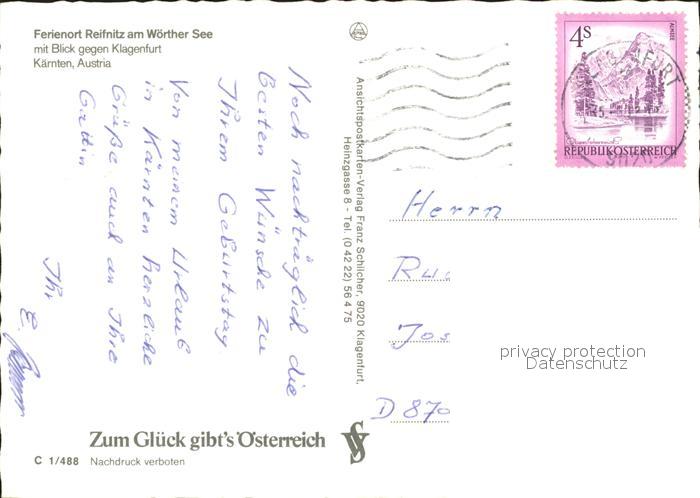 Ferienort Reifnitz am Wörther See
mit Blick gegen Klagenfurt
Kärnten, Austria
Noch nachträglich die
besten Wünsche zu
Ihrem Geburtstag.
Von meinem Urlaub
in Kärnten herzliche
Grüße auch an Ihre
Gattin
Ihr
E.
Ansichtspostkarten-Verlag Franz Schilcher, 9020 Klagenfurt,
Heinzgasse 8 - Tel. (0 42 22) 56 4 75
4S
ALMSEE
REPUBLIK ÖSTERREICH
Herrn
Ru.
Jos
D 870
privacy protection
Datenschutz
Zum Glück gibt's Österreich
C 1/488 Nachdruck verboten